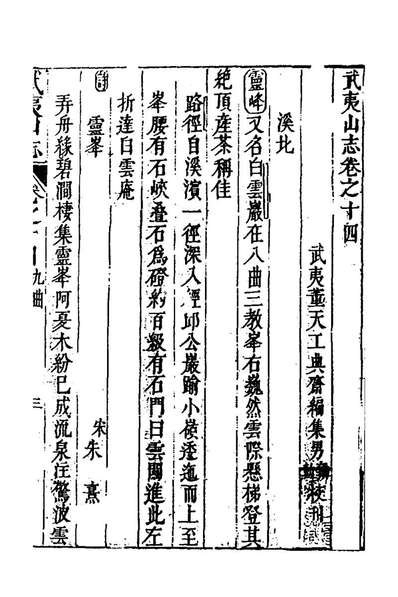 武夷山志卷之十四
武夷董天工典齋編集男
校刊
溪北
靈峰又名白雲巖在八曲三教峯右巍然雲際懸梯登其
絶頂産茶稱佳
路徑自溪濱一徑深入經邱公巖踰小嶺逶迤而上至
峯腰有石峽叠石爲磴約百級有石門曰雲關進此左
折達白雲庵
詩 靈峯
宋朱熹
弄舟綠碧澗棲集靈峯阿夏木紛已成流泉注驚波雲
武夷山志
九曲
三